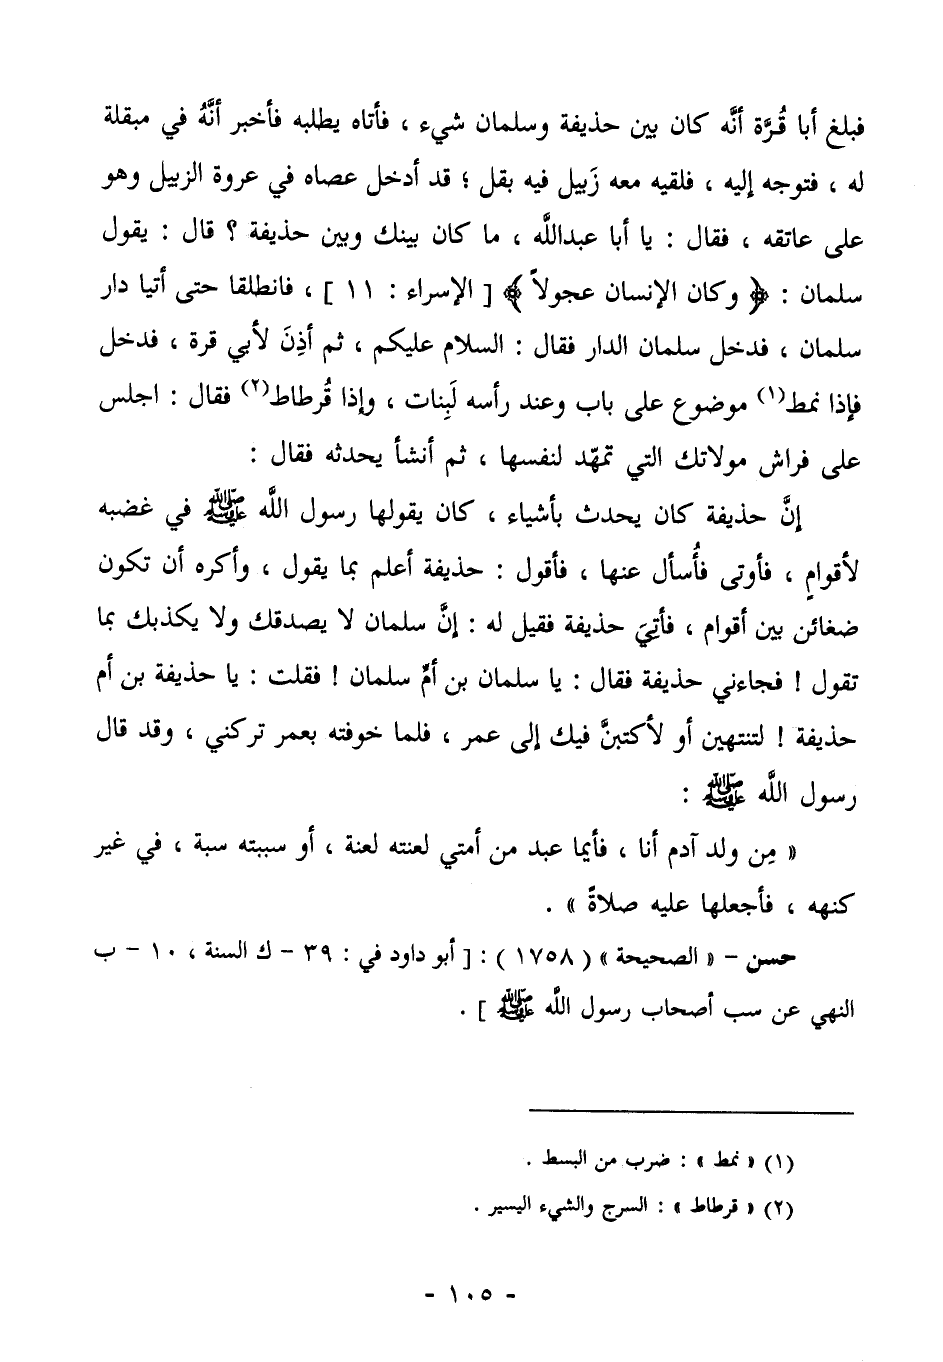 فبلغ أبا قُرَّة أنَّه كان بين حذيفة وسلمان شيء ، فأتاه يطلبه فأخبر أنَّهُ في مبقلة
له ، فتوجه إليه ، فلقيه معه زَبيل فيه بقل ؛ قد أدخل عصاه في عروة الزبيل وهو
على عاتقه ، فقال : يا أبا عبداللَّه ، ما كان بينك وبين حذيفة ؟ قال : يقول
سلمان : ﴿ وكان الإنسان عجولاً ﴾ [ الإسراء : ١١ ] ، فانطلقا حتى أتيا دار
سلمان ، فدخل سلمان الدار فقال : السلام عليكم ، ثم أذِنَ لأبي قرة ، فدخل
فإذا نمط(١) موضوع على باب وعند رأسه لَبِنات ، وإذا قُرطاط(٢) فقال : اجلس
على فراش مولاتك التي تمهّد لنفسها ، ثم أنشأ يحدثه فقال :
إنَّ حذيفة كان يحدث بأشياء ، كان يقولها رسول اللَّه ﷺ في غضبه
لأقوامٍ ، فأوتى فأُسأل عنها ، فأقول : حذيفة أعلم بما يقول ، وأكره أن تكون
ضغائن بين أقوام ، فأتِيَ حذيفة فقيل له : إنَّ سلمان لا يصدقك ولا يكذبك بما
تقول ! فجاءني حذيفة فقال : يا سلمان بن أمِّ سلمان ! فقلت : يا حذيفة بن أم
حذيفة ! لتنتهين أو لأكتبنَّ فيك إلى عمر ، فلما خوفته بعمر تركني ، وقد قال
رسول اللَّه ﷺ :
« مِن ولد آدم أنا ، فأيما عبد من أمتي لعنته لعنة ، أو سببته سبة ، في غير
كنهه ، فأجعلها عليه صلاةً » .
حسن - « الصحيحة » ( ١٧٥٨ ) : [ أبو داود في : ٣٩ - ك السنة ، ١٠ - ب
النهي عن سب أصحاب رسول اللَّه ﷺ ] .
(١) « نمط » : ضرب من البسط .
(٢) « قرطاط » : السرج والشيء اليسير .
- ١٠٥ -